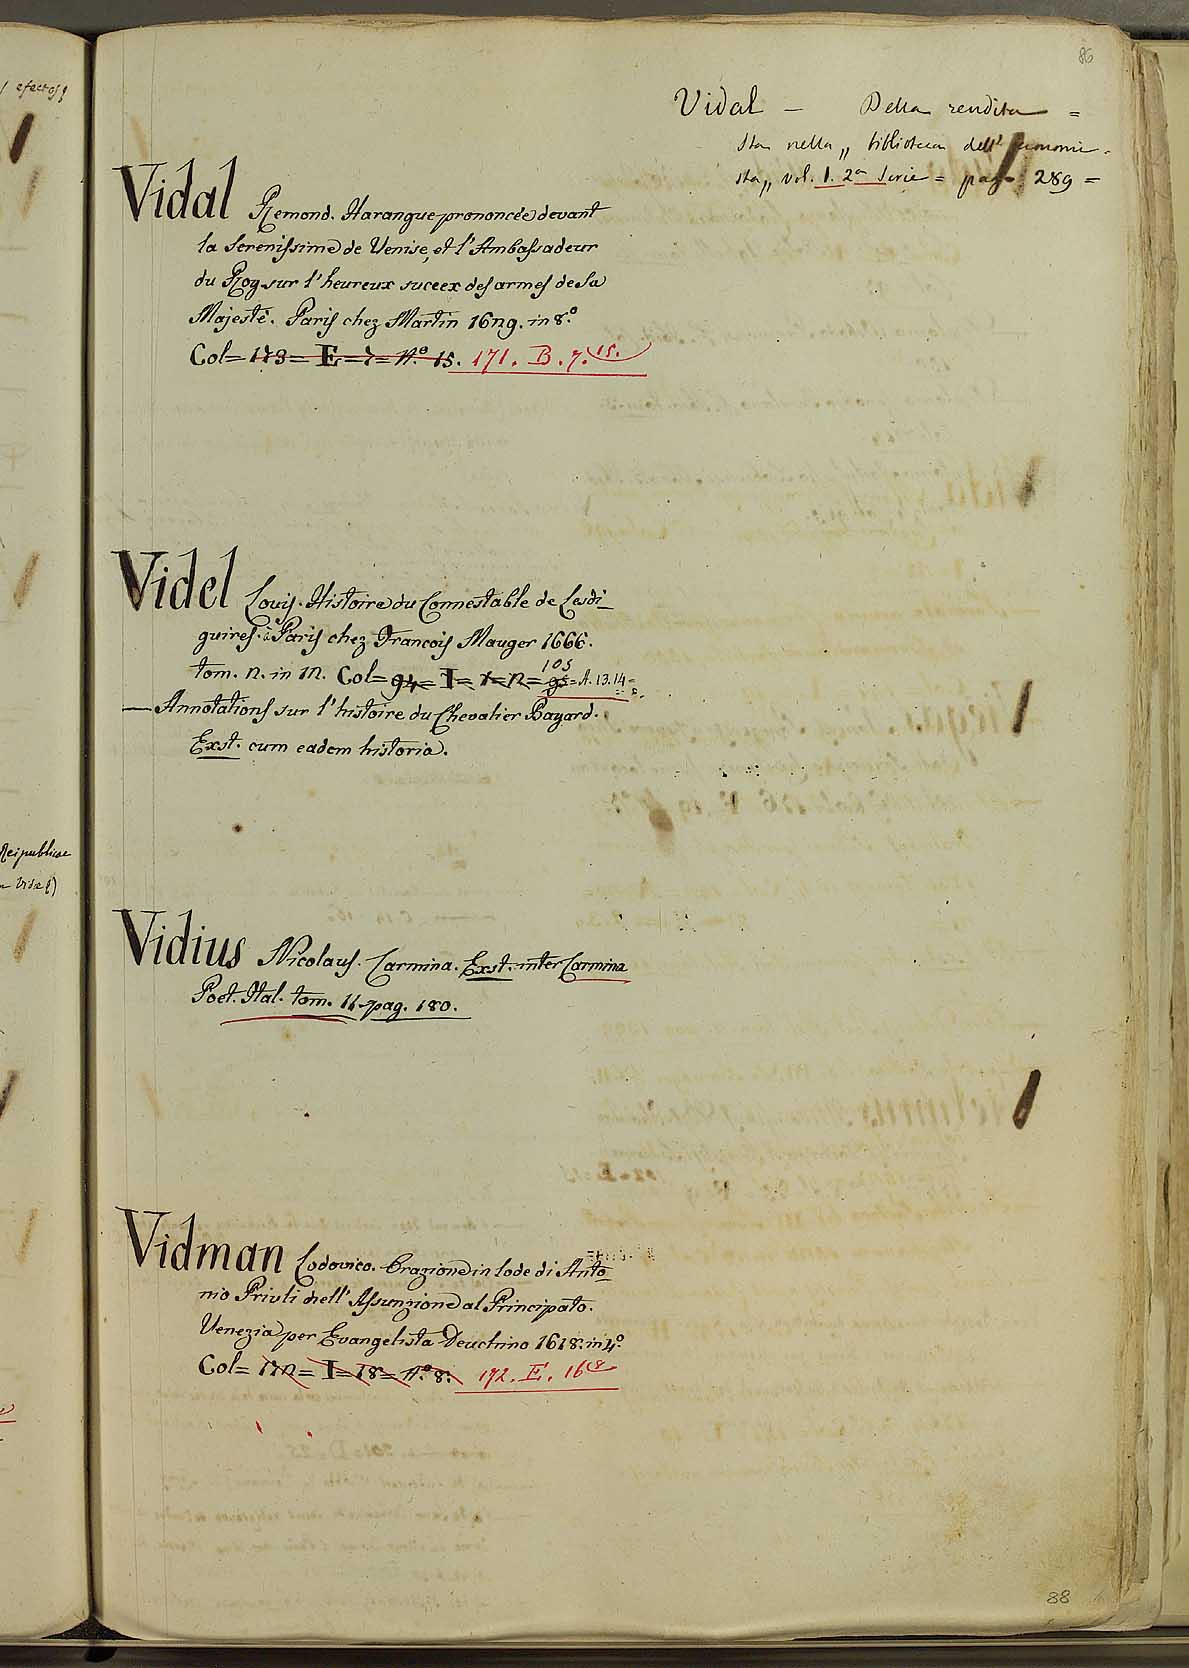 efectos
Reipublicae
86
Vidal — Della rendita =
Sta nella „ biblioteca dell' economi-
sta„ vol. 1. 2a Serie = pag. 289 =
Vidal Remond. Harangue prononcée devant
la Serenissime de Venise, et l'Ambassadeur
du Roy sur l'heureux succex des armes de Sa
Majesté. Paris chez Martin 1629. in 8.o
Col= 173= E =7= N.o 15. 171. B. 7. 15.
Videl Louis. Histoire du Connestable de Lesdi_
guires. à Paris chez Francois Mauger 1666.
tom. 2. in 12. Col= 94= I= 1= 2= 95 105 = A. 13.14=
— Annotations sur l'histoire du Chevalier Bayard.
Exst. cum eadem historia.
Vidius Nicolaus. Carmina. Exst. inter Carmina
Poet. Ital. tom. 11. pag. 180.
Vidman Lodovico. Orazione in lode di Anto_
nio Priuli nell'Assunzione al Principato.
Venezia per Evangelista Deuchino 1618. in 4.o
Col= 172= I= 18= N.o 8. 172. E. 16 8
88